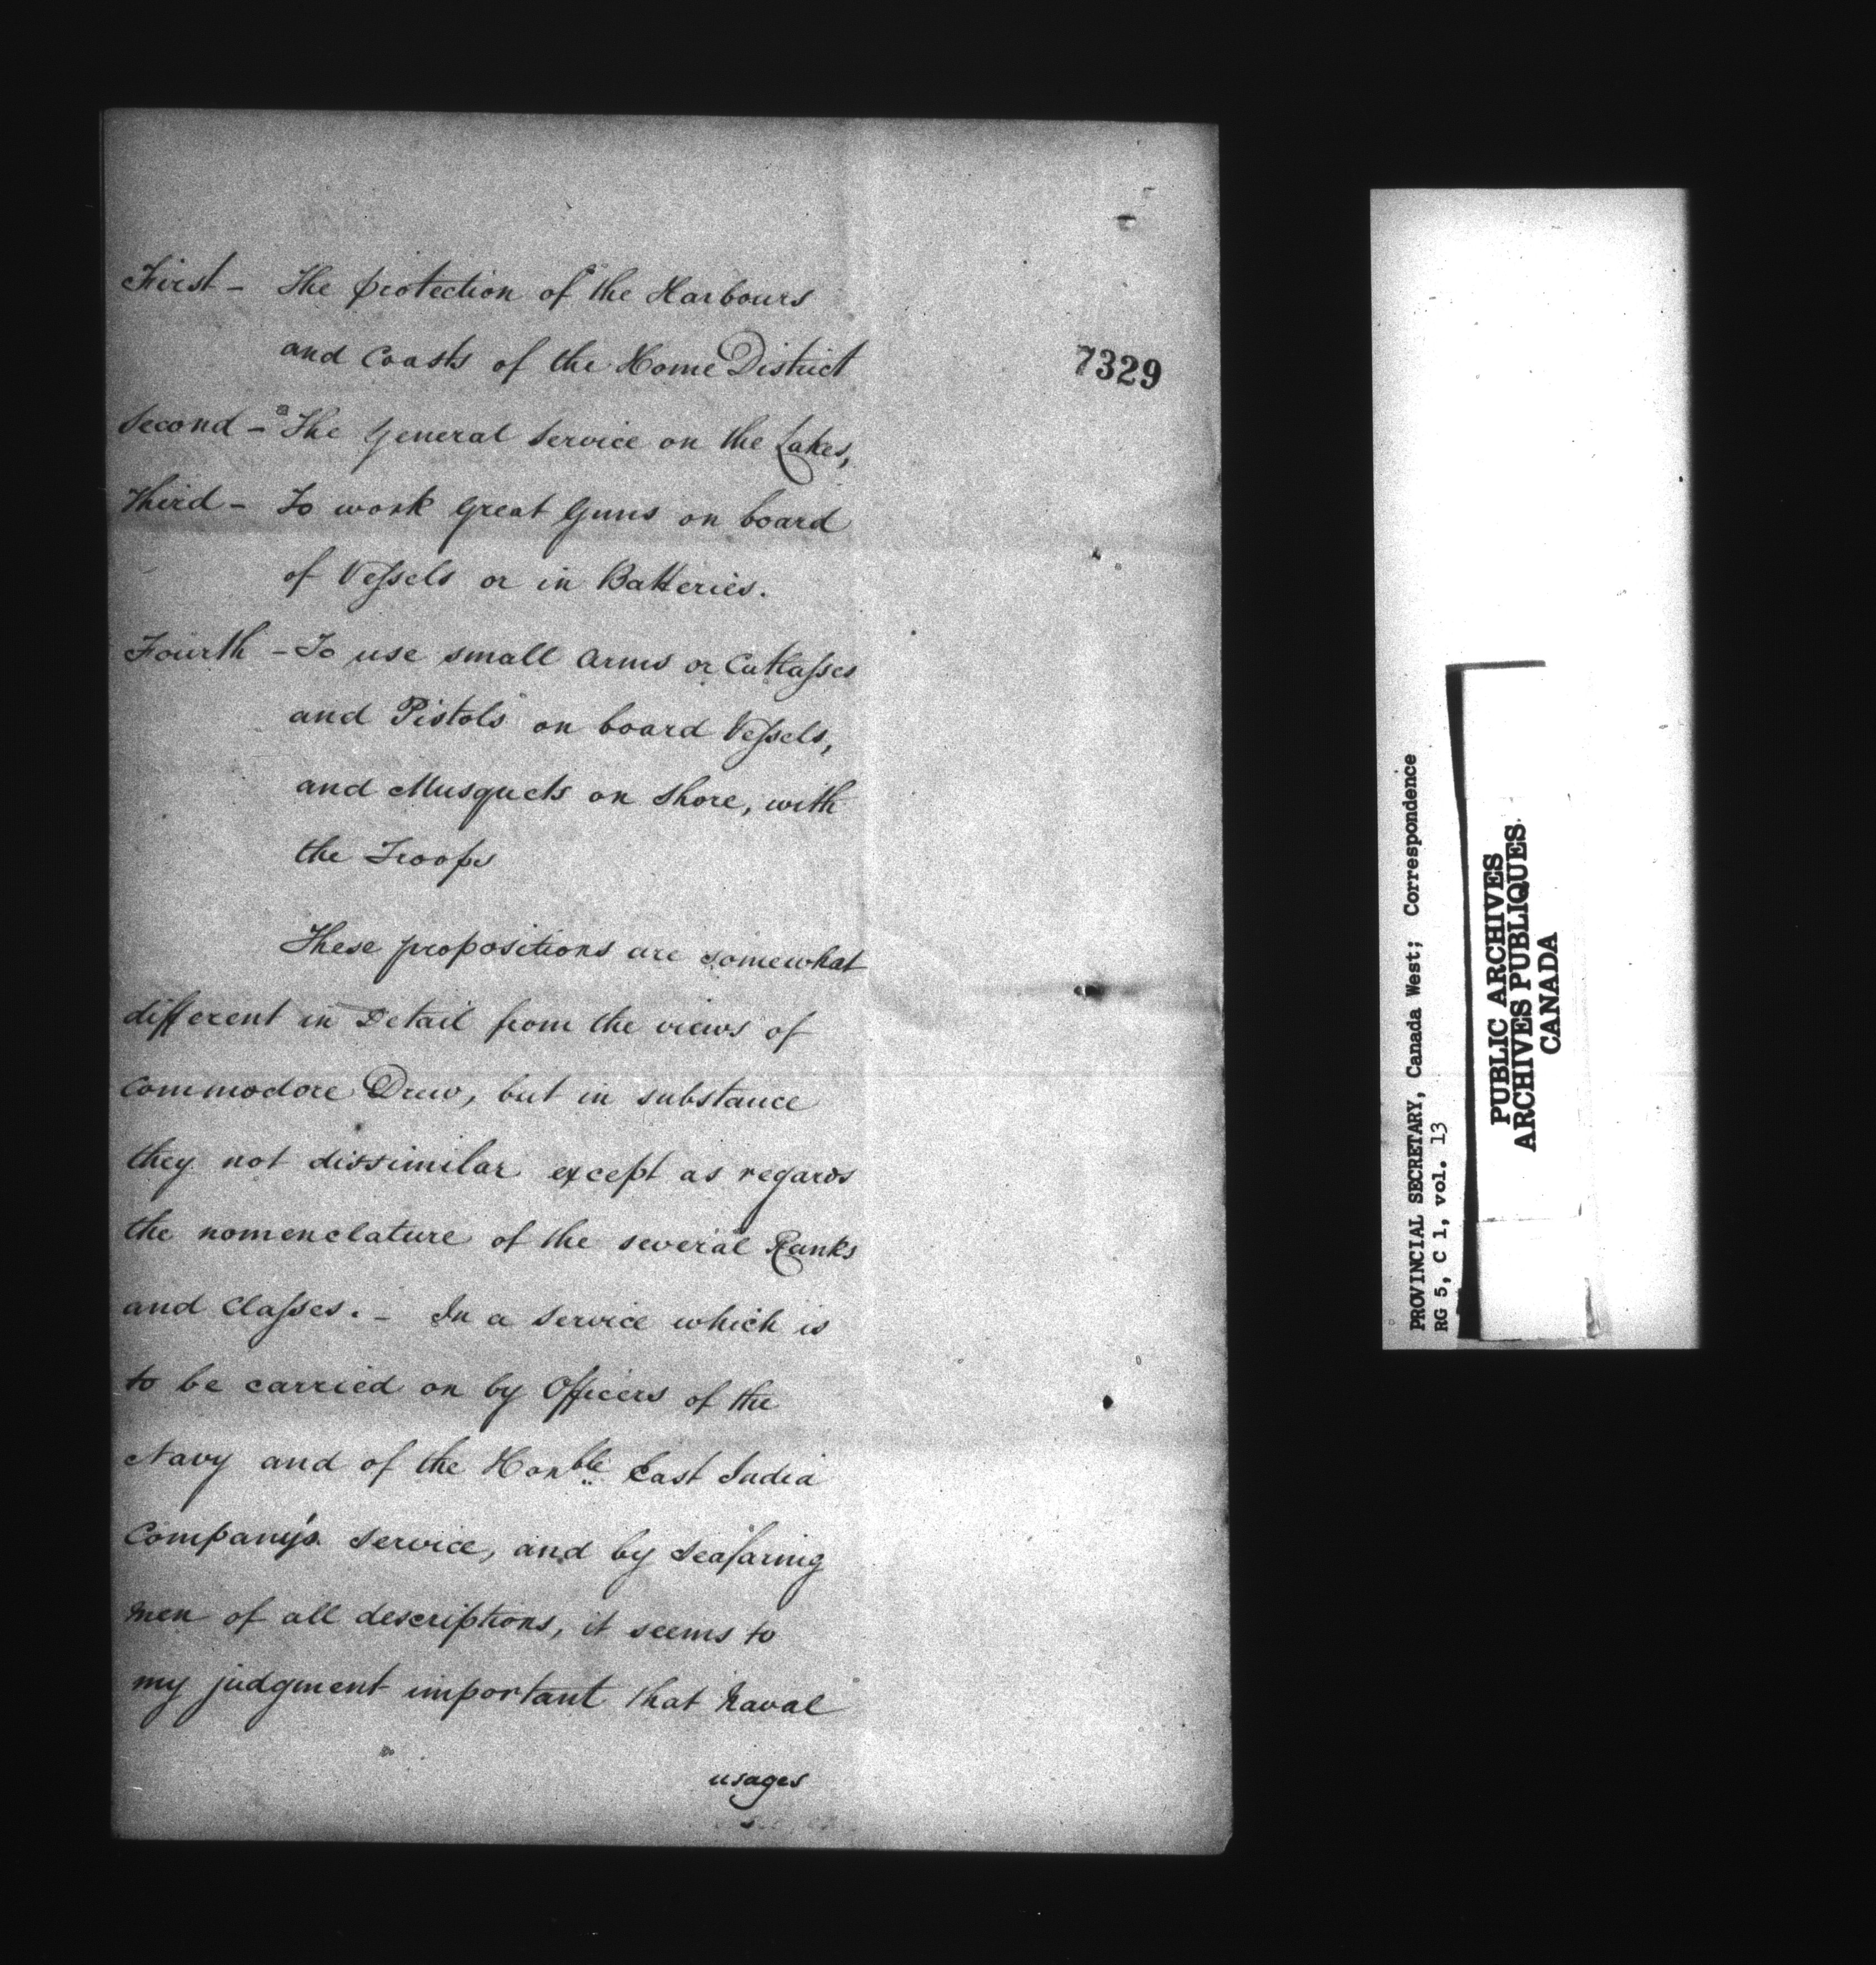 First - The protection of the Harbours
and Coasts of the Home District
7329
Second - The General Service on the Lakes,
Third - To work Great Guns on board
of Vessels or in Batteries.
Fourth - To use small Arms or Cutlasses
and Pistols on board Vessels,
and Musquets on shore, with
the Troops
These propositions are somewhat
different in Detail from the views of
Commodore Drew, but in substance
they not dissimilar except as regards
the nomenclature of the several Ranks
and Classes. - In a service which is
to be carried on by Officers of the
Navy and of the Honble East India
Company's service, and by seafaring
men of all descriptions, it seems to
my judgment important that Naval
usages
PROVINCIAL SECRETARY, Canada West; Correspondence
RG 5, C 1, vol. 13
PUBLIC ARCHIVES
ARCHIVES PUBLIQUES
CANADA